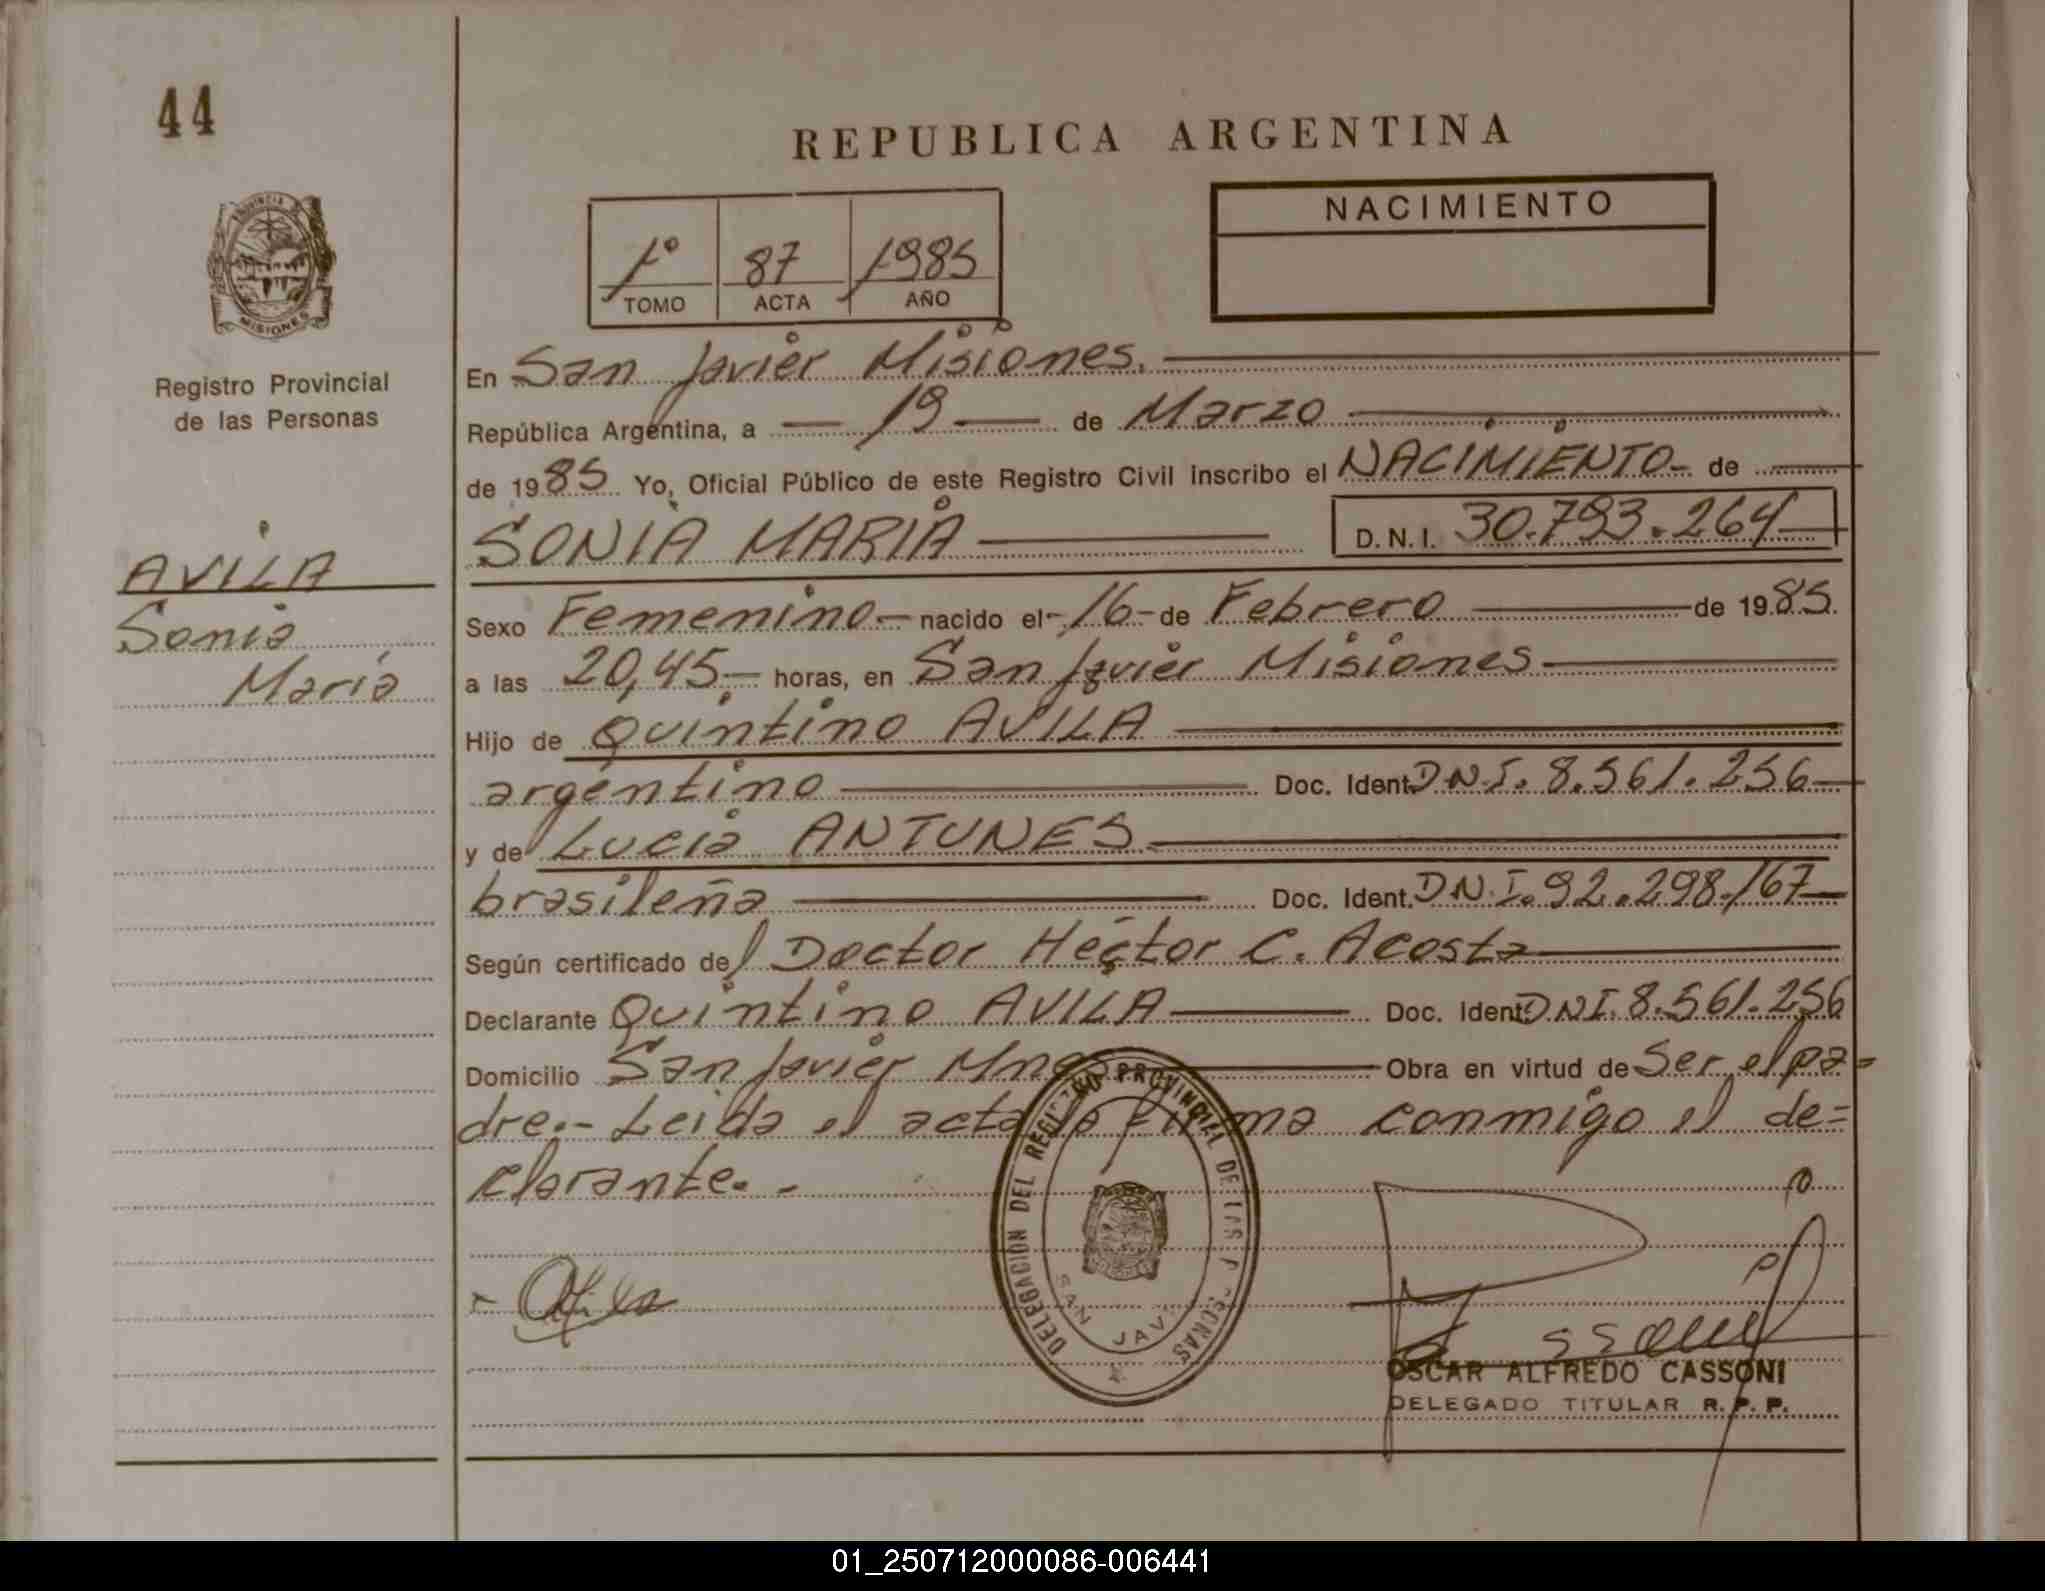 44
REPUBLICA ARGENTINA
PROVINCIA DE
MISIONES
Registro Provincial
de las Personas
1º 87 1985
TOMO ACTA AÑO
NACIMIENTO
En San Javier Misiones.
República Argentina, a — 19 — de Marzo
de 1985 Yo, Oficial Público de este Registro Civil inscribo el NACIMIENTO- de
SONIA MARIA D.N.I. 30.793.264
AVILA
Sonia
María
Sexo Femenino - nacido el - 16 - de Febrero de 1985.
a las 20,45.- horas, en San Javier Misiones
Hijo de Quintino AVILA
argentino Doc. Ident. D.N.I. 8.561.256
y de Lucia ANTUNES
brasileña Doc. Ident. D.N.I. 92.298.167
Según certificado del Doctor Héctor C. Acosta
Declarante Quintino AVILA Doc. Ident. DNI. 8.561.256
Domicilio San Javier Mnes Obra en virtud de Ser el pa=
dre.- Leida el acta la firma conmigo el de=
clarante. -
DELEGACION DEL REGISTRO PROVINCIAL DE LAS PERSONAS
SAN JAV
Avila
OSCAR ALFREDO CASSONI
DELEGADO TITULAR R.P.P.
01_250712000086-006441